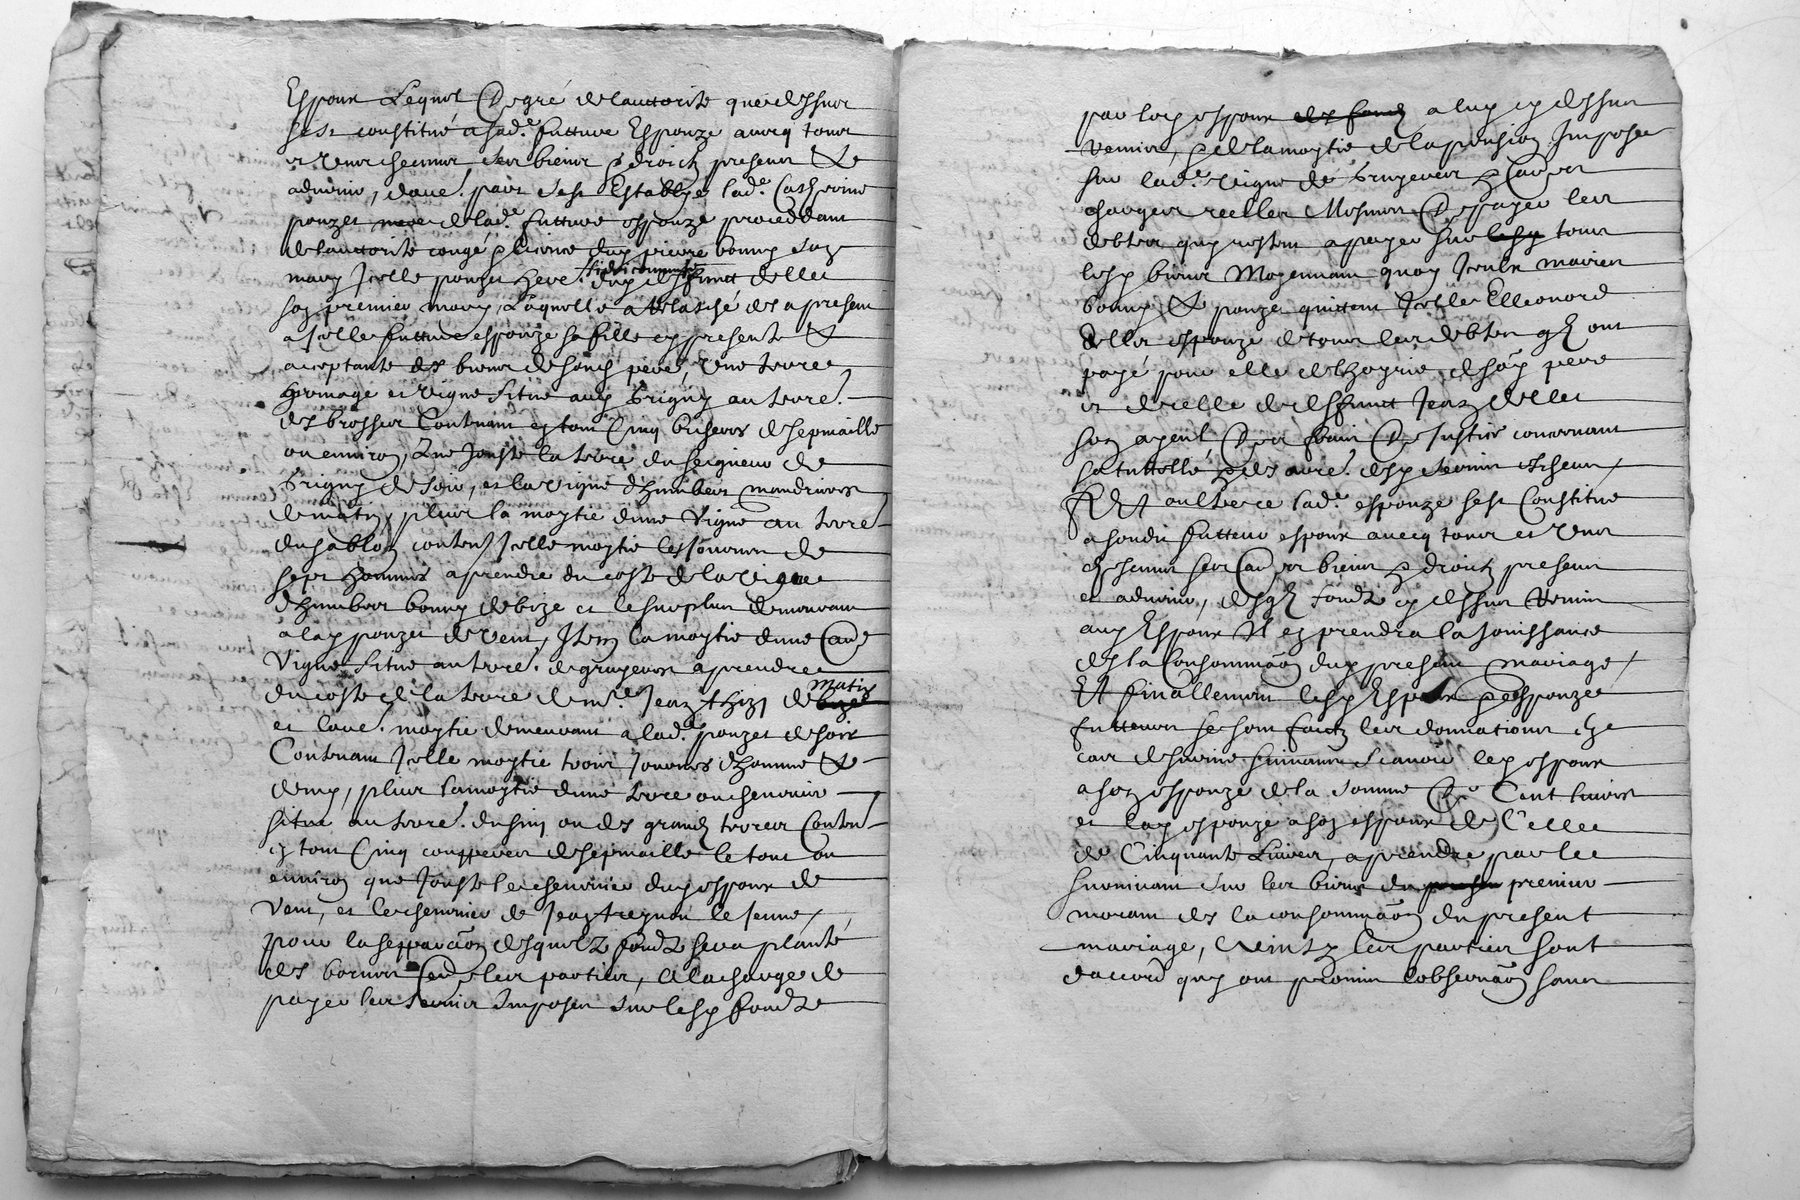 Espoux Lequel de gré de lauttorite que dessus
sest constitué a sad.e futture Espouze avecq tous
et ung chacuns ses biens & droictz presens &
advenir, davel. part sest Establye lad.e Catherine
ponzet mere de lad.e futture espouze proceddant
de lauttorite congé & licence dud pierre bonny son
mary Icelle ponzet here. fideicommis dud deffunct Dellet
son premier mary, Laquelle a relasché des a present
a Icelle futture espouze sa fille cy presente &
acceptante des biens de sond pere, une terre
hermage et vigne situe aud Grigny au terre.
des brosses Contenant en tout Cinq bicherees de sepmaille
ou environ, que Jouste la terre du seigneur de
Grigny de soir, et la vigne dhumbert mandrinet
de matin, plus la moytie dune vigne au terre.
du sablon conten. Icelle moytie les Journées de
sept hommes a prendre du coste de la vigne
dhumbert bonny de bize et le surplus demeurant
a lad ponzet de vent, Item la moytie dune aue.
Vigne situe au terre. de grugeres a prendre
du coste de la terre de m.e Jean thizy de bize matin
et laue. moytie demeurant a lad.e ponzet de soir
Contenant Icelle moytie trois Journées dhomme &
demy, plus la moytie dune terre ou chenevier
situe au terre. du sim ou des grandz terres Conten.
en tout Cinq coupperees de sepmaille le tout ou
environ que Jouste le chenevier dud espoux de
Vent, et le chenevier de Jean tregnou le Jeune,
pour la sepparaõn desquelz fondz sera planté
des bornes entre les parties, A la charge de
payer les servis Imposes sur lesd fondz
par led espoux des fondz a luy cy dessus
remis, & de la moytie de la pension Imposee
sur lad.e vigne de Grugeres & aues
charges reelles Mesmes de payer les
debtes quy restent a payer sur lesd tous
lesd biens Moyennant quoy Iceulx maries
bonny & ponzet quittent Icelle Elleonord
Dellet espouze de tous les debtes qlz ont
payé pour elle de lhoyrie de son pere
et de celle de deffunct Jean Dellet
son ayeul des frais de Justice concernant
sa tuttelle & des arre. desd servis Escheus
Et oultre ce lad.e espouze sest Constitué
a sondit futteur espoux avecq tous et ung
chacuns ses aues biens & droictz presens
et advenir, desqlz fondz cy dessus Remis
aud Espoux Il en prendra la Jouissance
des la Consommaõn dud present mariage,
Et finallement lesd Espoux & espouze
futteurs se sont faictz les donnations en
cas de survie suivantes scavoir led espoux
a son espouze de la somme de Cent livres
et lad espouze a son espoux de Celle
de Cinquante Livres, a prendre par le
survivant sur les biens du premier
mourant des la consommaõn du present
mariage, Ainsy les parties sont
daccord quy ont promis lobservaõn soubz